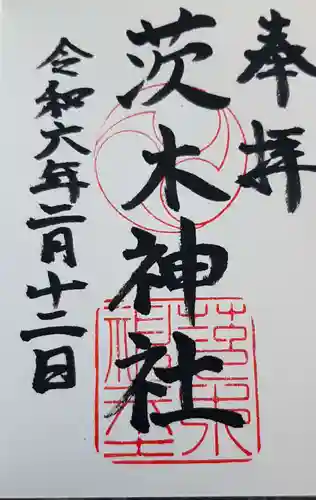 奉拝
茨木神社
令和六年二月十二日
茨木神社